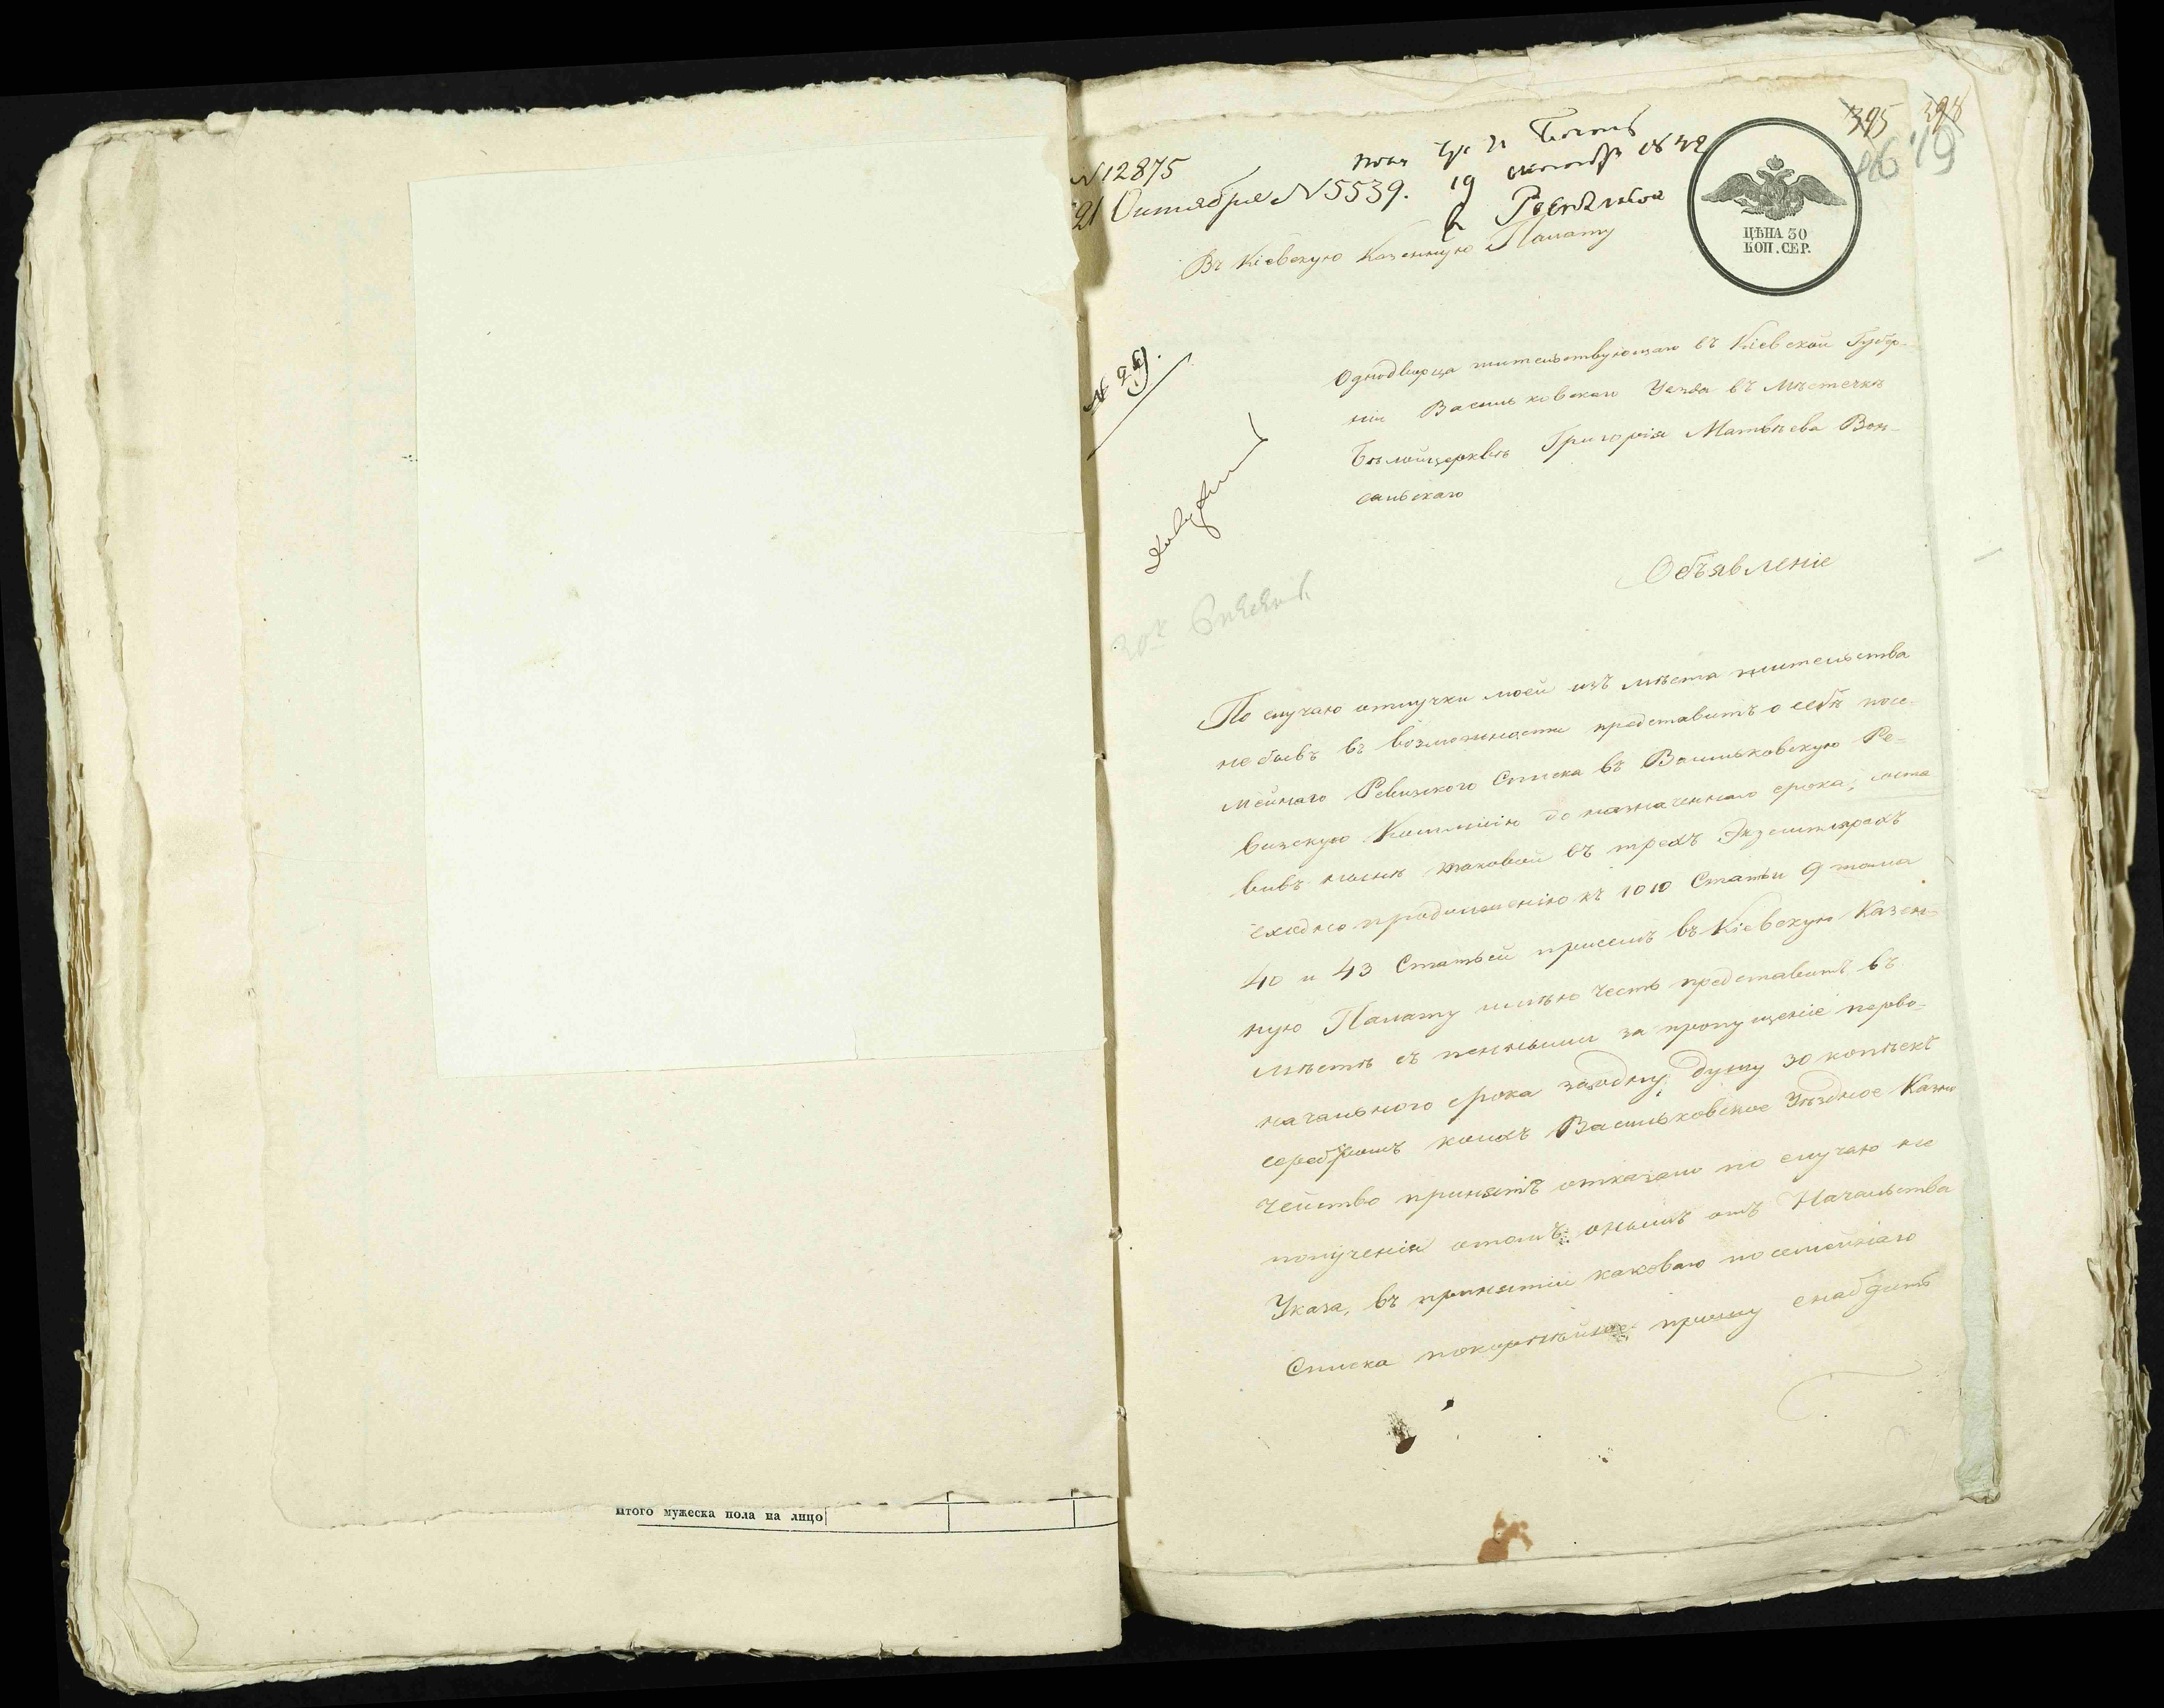 Итого мужеска пола на лицо
395
N 12875
21 Октября N 5539.
19 октября 1842
ЦѢНА 30
КОП. СЕР.
Въ Кіевскую Казенную Палату
N 29.
Однодворца жительствующаго въ Кіевской Губер-
ніи Васильковскаго Уезда въ Мѣстечкѣ
Бѣлойцерквѣ Григорія Матвѣева Вон-
сальскаго
Объявленіе
По случаю отлучки моей изъ мѣста жительства
не бывъ въ возможности представить о себѣ посе-
мейнаго Ревизского Списка въ Васильковскую Ре-
визскую Коммисію до назначеннаго срока,
вивъ нынѣ таковой въ трехъ Экземплярахъ
продолженію къ 1010 Статьи 9 тома
40 и 43 Статьей при семъ въ Кіевскую Казен-
ную Палату имѣю честь представить въ
мѣстѣ съ пенными за пропущеніе перво-
начального срока за одну душу 30 копѣекъ
серебромъ коихъ Васильковское Уѣздное Казна
чейство принять отказало по случаю не
полученія отомъ онымъ отъ Начальства
Указа, въ принятіи каковаго посемейнаго
Списка покорнѣйше прошу снабдить